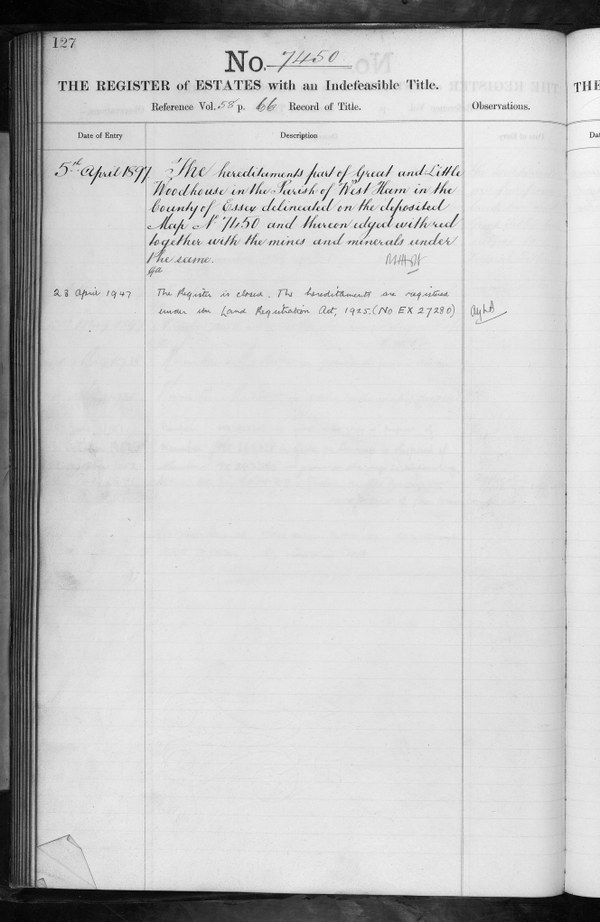 127
No. 7450
THE REGISTER of ESTATES with an Indefeasible Title.
Reference Vol. 58 p. 66 Record of Title.
Observations.
Date of Entry
Description
5th April 1897
The hereditaments part of Great and Little
Woodhouse in the Parish of West Ham in the
County of Essex delineated on the deposited
Map No 7450 and thereon edged with red
together with the mines and minerals under
the same.
23 April 1947
The Register is closed. The hereditaments are registered
under the Land Registration Act, 1925. (No EX 27280)
THE
Dat